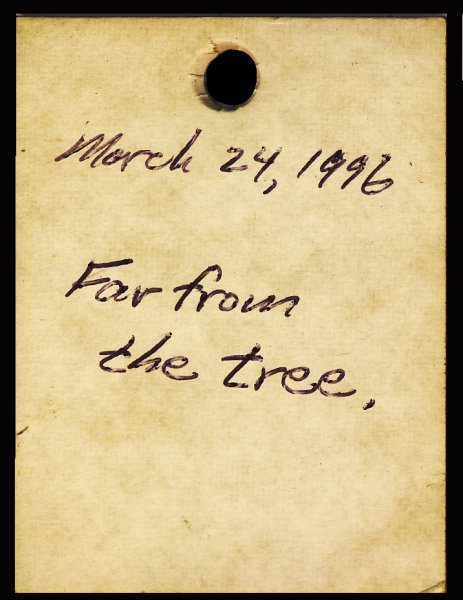 March 24, 1996
Far from
the tree.